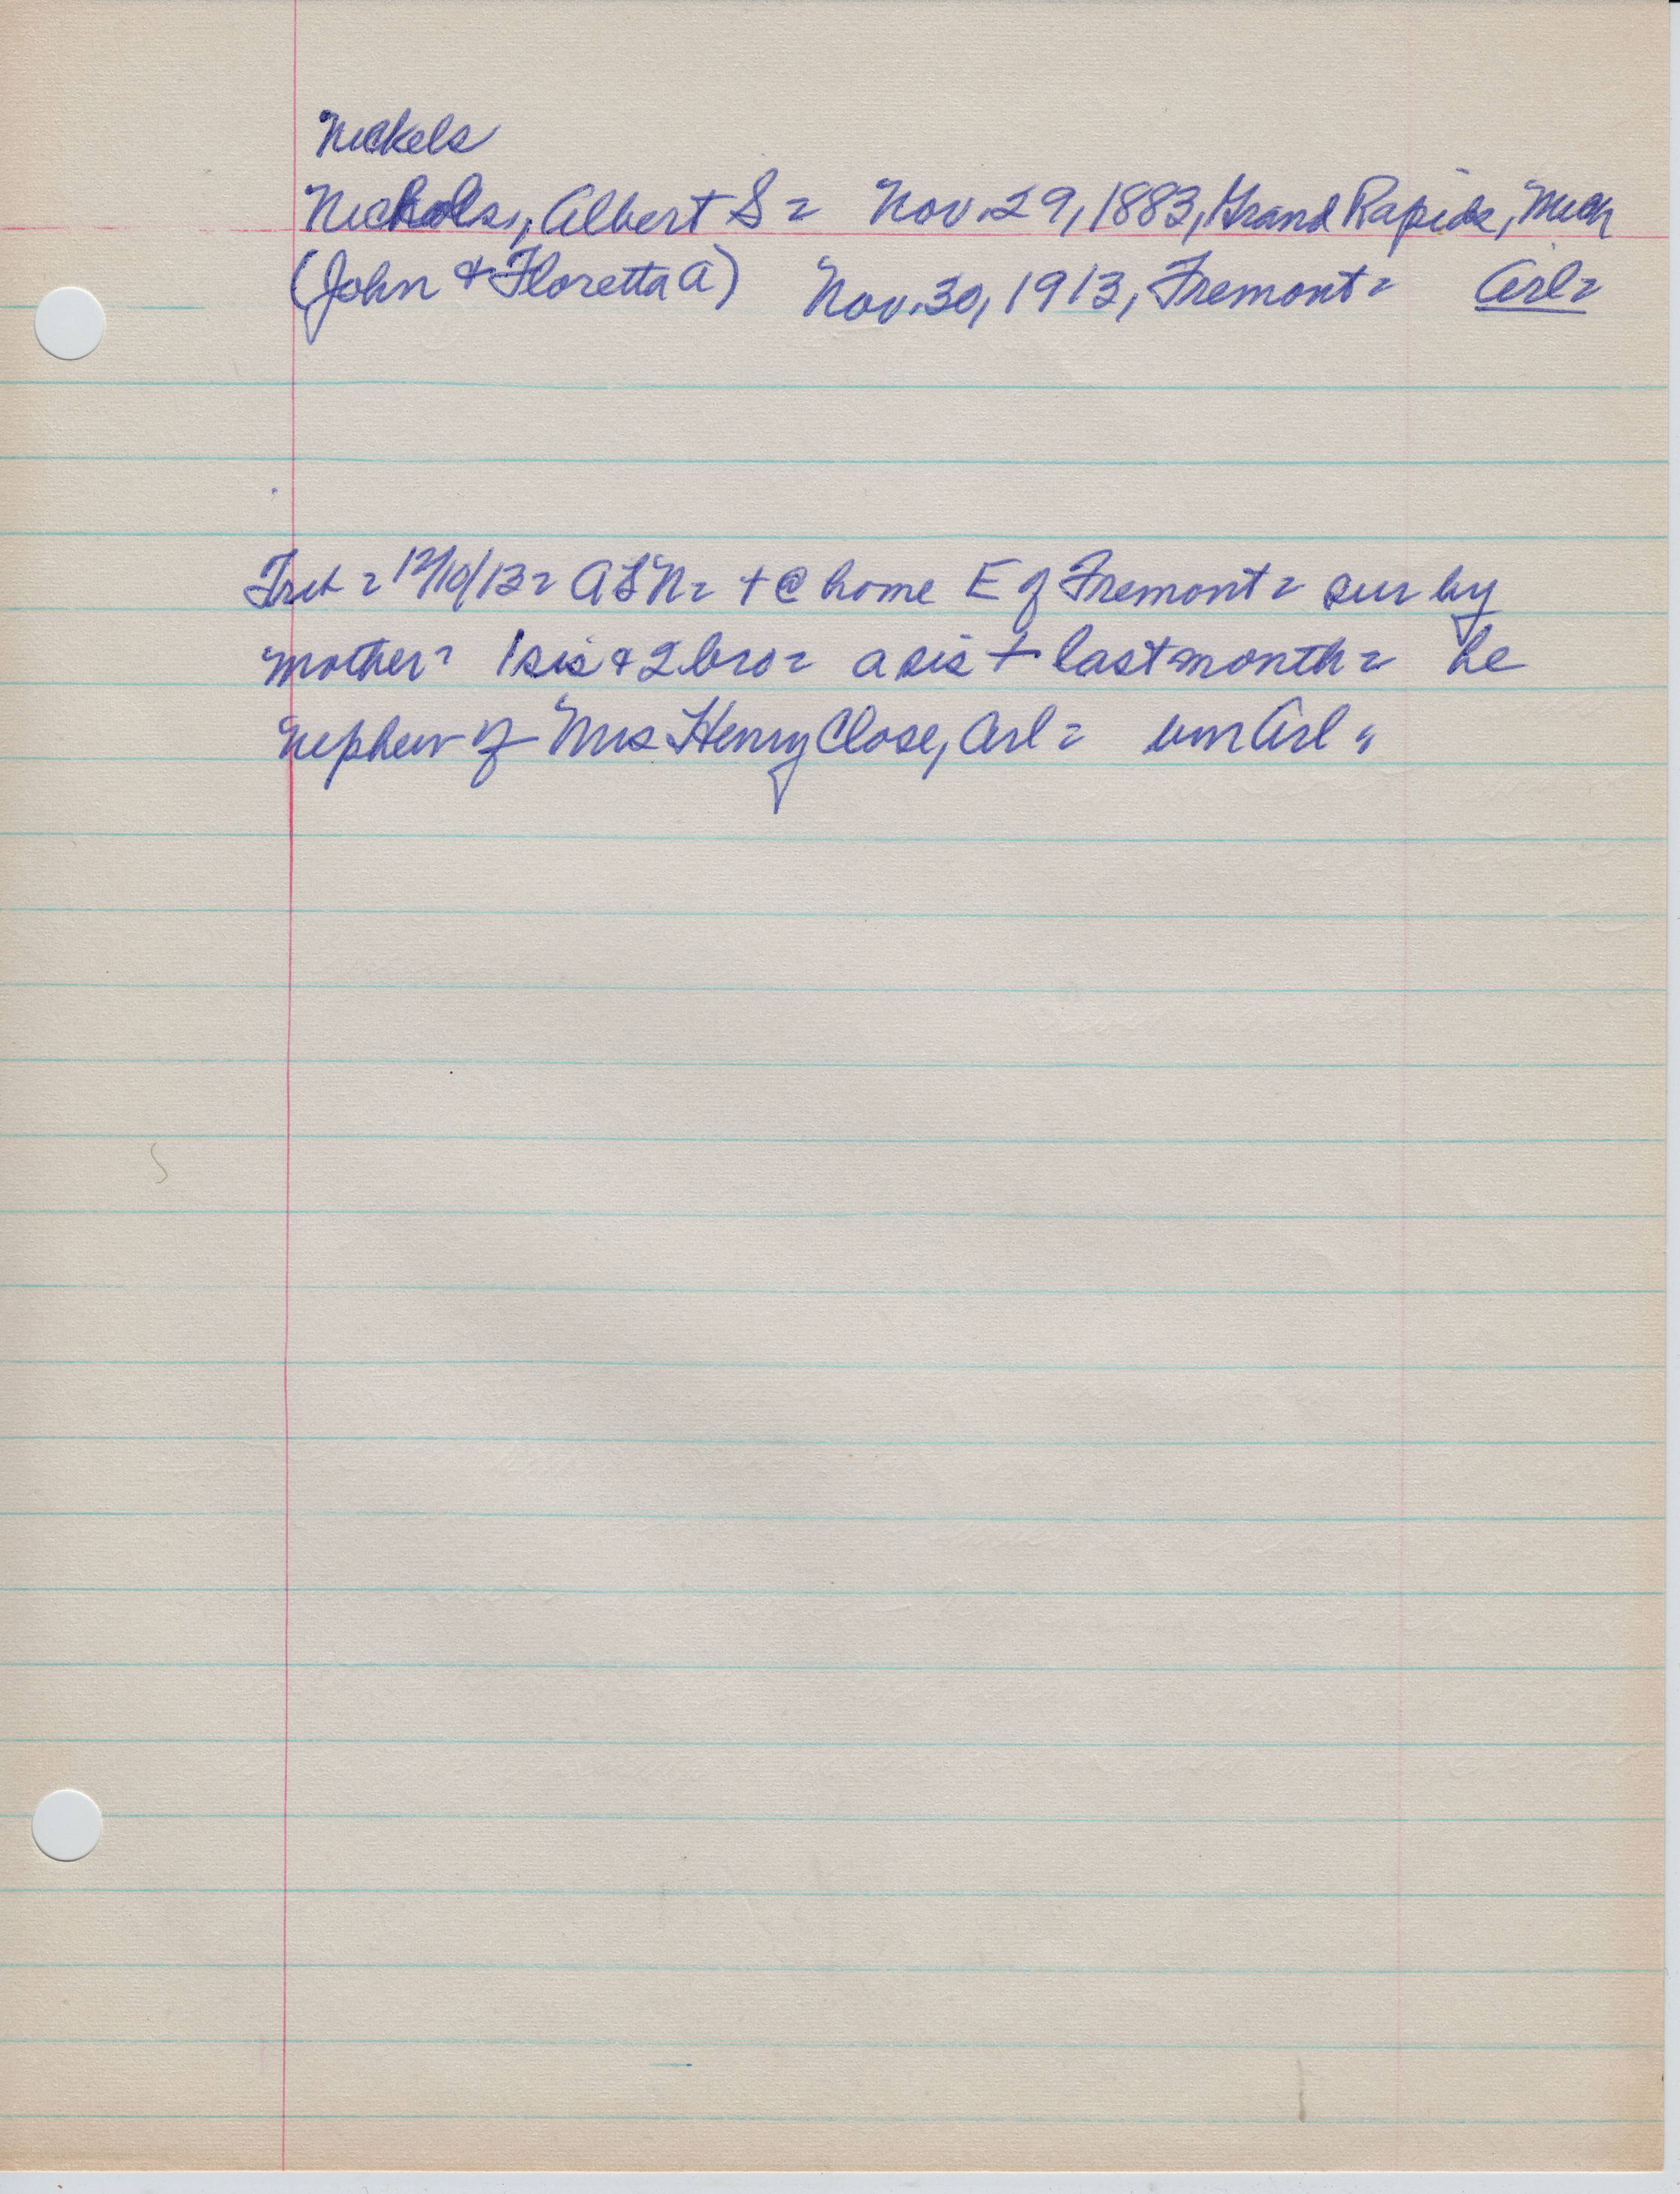 Nickels
Nichols, Albert S = Nov. 29, 1883, Grand Rapids, Mich
(John & Floretta A) Nov. 30, 1913, Fremont = Arl=
= 12/10/13 = ASN = + @ home E of Fremont = sur by
mother = 1 sis & 2 bro = a sis + last month = he
nephew of Mrs Henry Close, Arl = Arl =